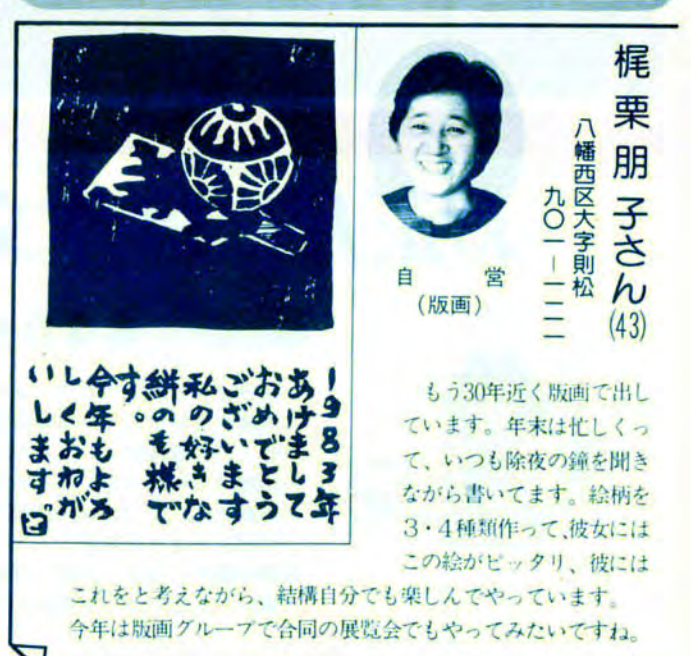 梶栗朋子さん(43)
八幡西区大字則松
九〇一―一二一
自営
(版画)
1983年
あけまして
おめでとう
ございます
私の好きな
絣のも様で
す。
今年もよろ
しくおねが
いします。
もう30年近く版画で出し
ています。年末は忙しくっ
て、いつも除夜の鐘を聞き
ながら書いてます。絵柄を
3・4種類作って、彼女には
この絵がピッタリ、彼には
これをと考えながら、結構自分でも楽しんでやっています。
今年は版画グループで合同の展覧会でもやってみたいですね。